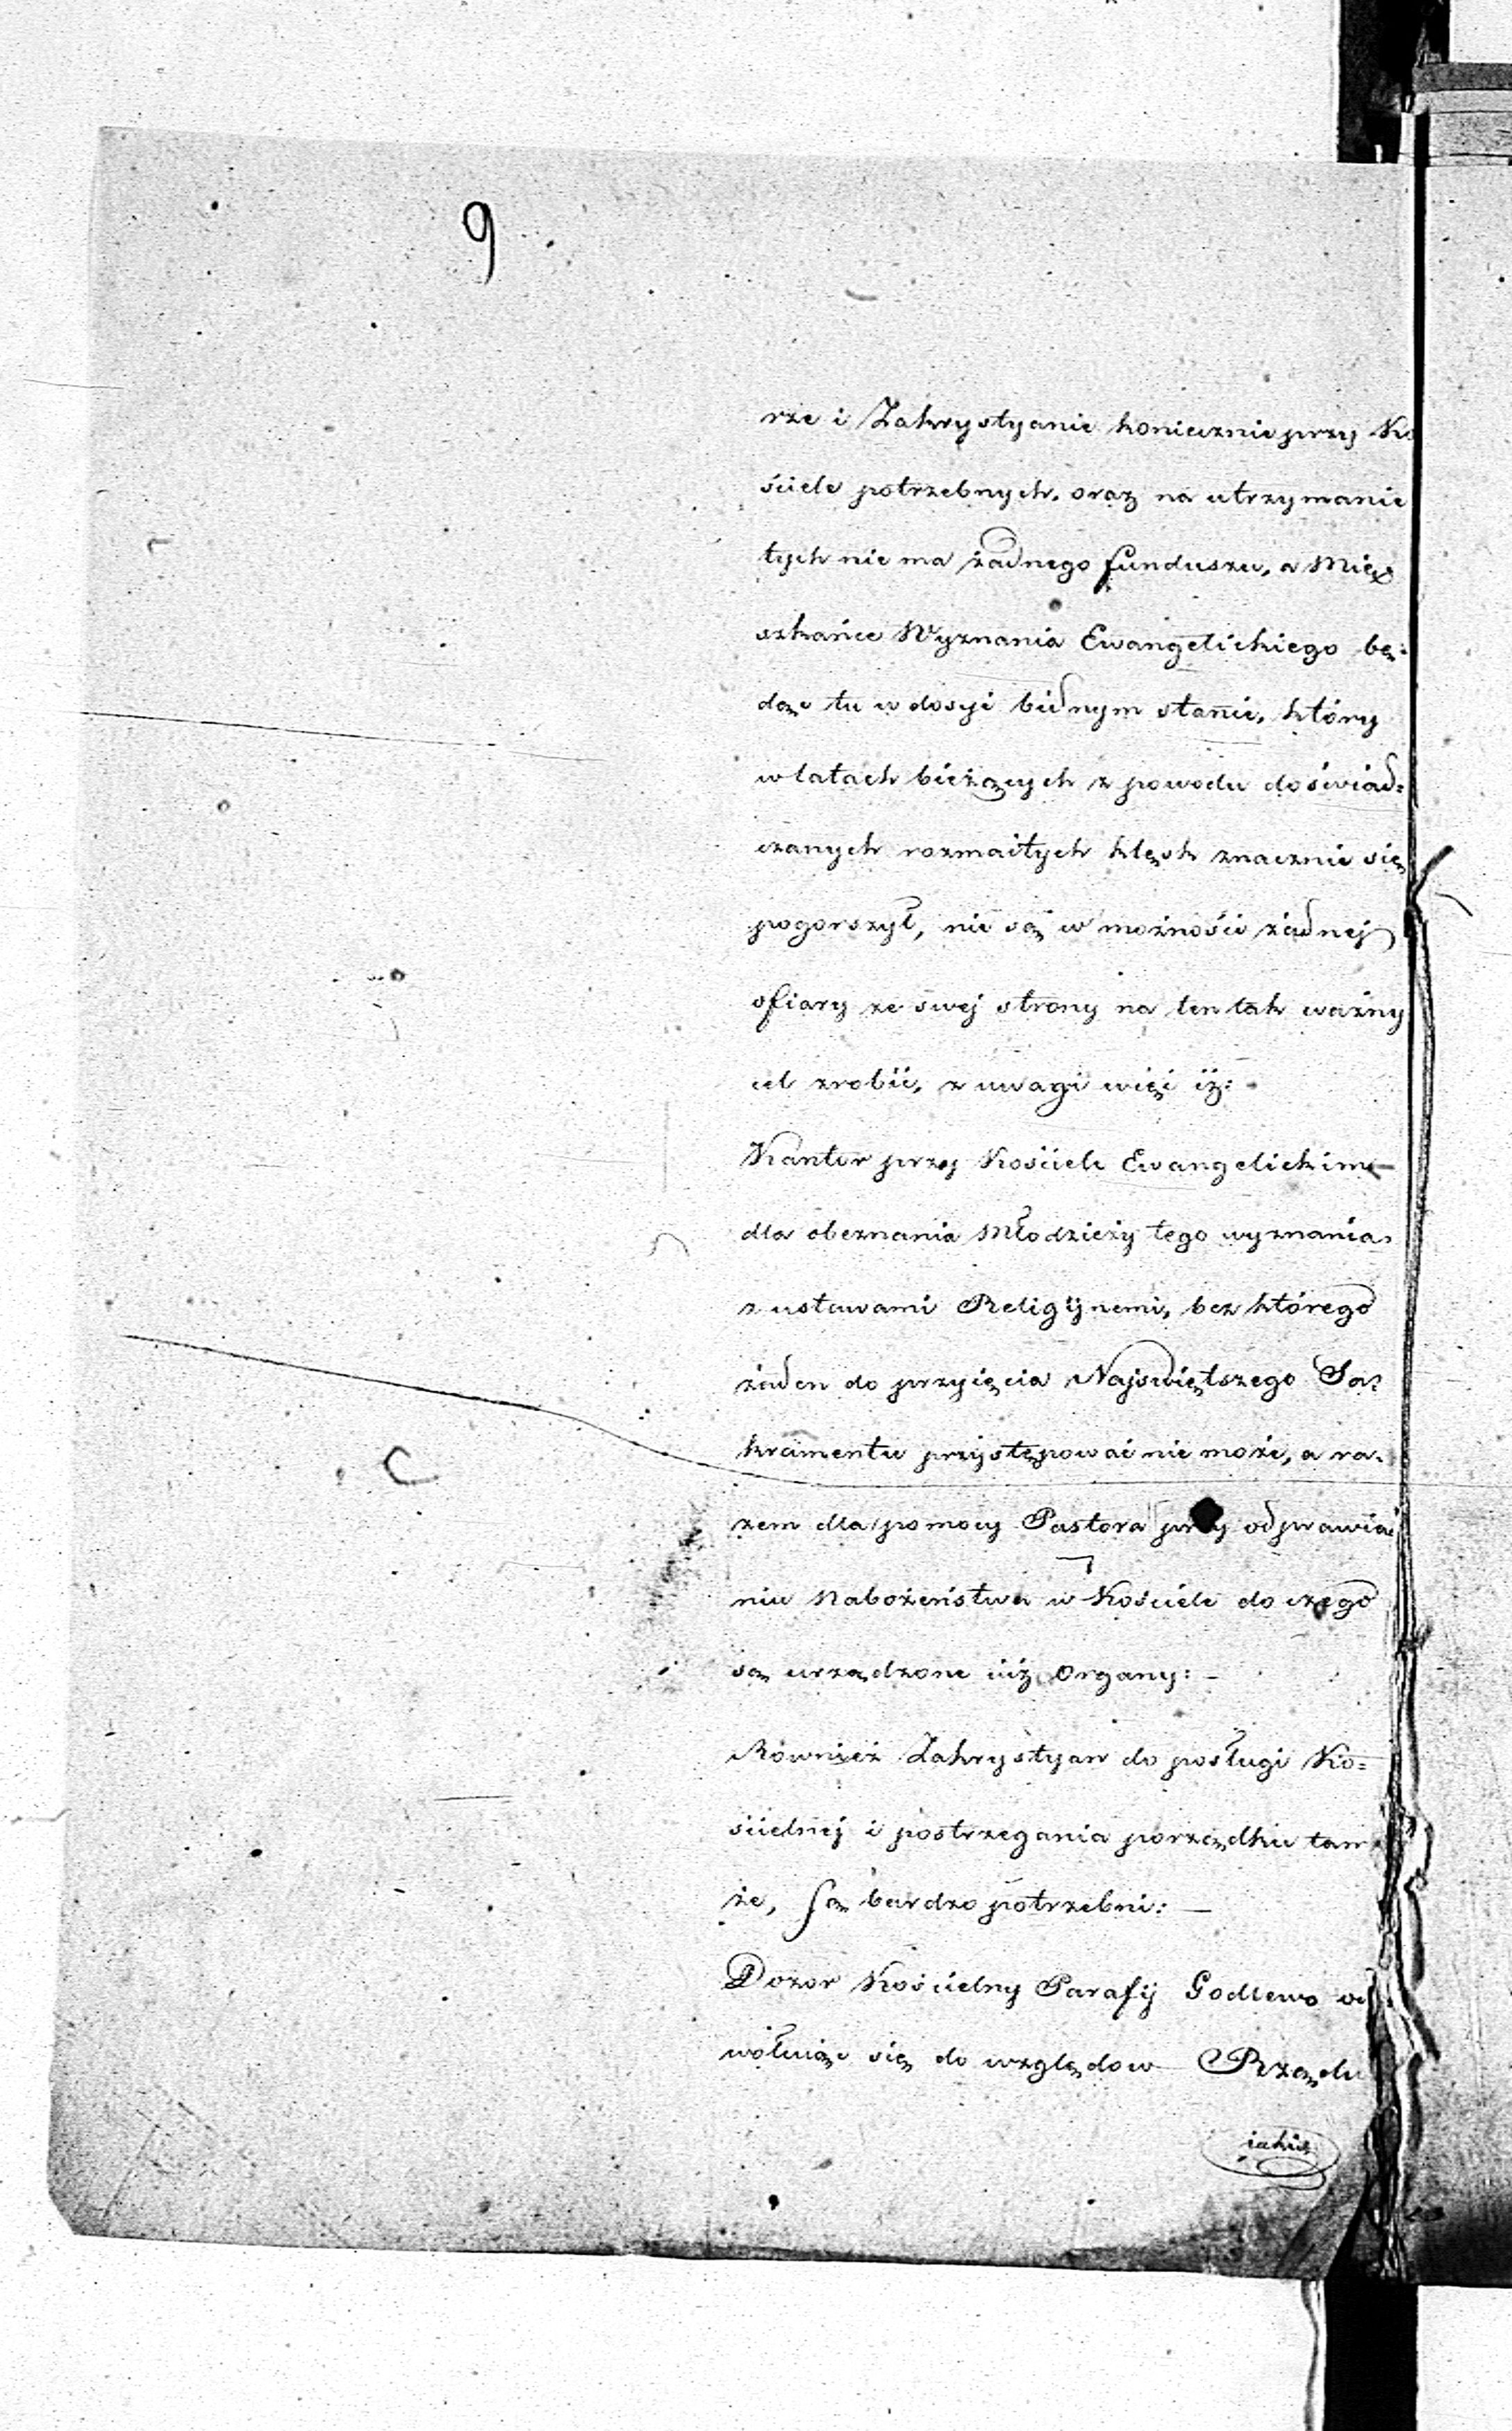 9
rze i Zakrystyanie koniecznie przy Ko
ściele potrzebnych, oraz na utrzymanie
tych nie ma żadnego funduszu, a Miesz
szkańce Wyznania Ewangelickiego bę:
dąc tu w dosyć biednym stanie, który
w latach bieżących z powodu doświad:
czanych rozmaitych klęsk znacznie się
pogorszył, nie są w możności żadnej
ofiary ze swej strony na ten tak ważny
cel zrobić, z uwagi więc iż:
Kantor przy Kościele Ewangelickim
dla obeznania Młodzieży tego wyznania
z ustawami Religijnemi, bez którego
żaden do przyięcia Najświętszego Sa:
kramentu przystępować nie może, a ra:
zem dla pomocy Pastora przy odprawia
niu Nabożeństwa w Kościele do czego
są urządzone iuż Organy: —
Również Zakrystyan do posługi Ko=
ścielnej i postrzegania porządku tam
że, są bardzo potrzebni: —
Dozor Kościelny Parafij Godlewo od
wołuiąc się do względow Rządu